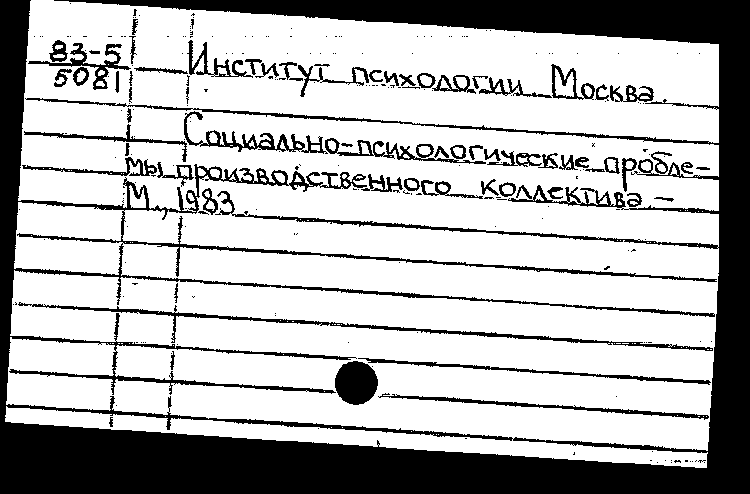 83-5
5081
Институт психологии. Москва.
Социально-психологические пробле-
мы производственного коллектива. –
М., 1983.